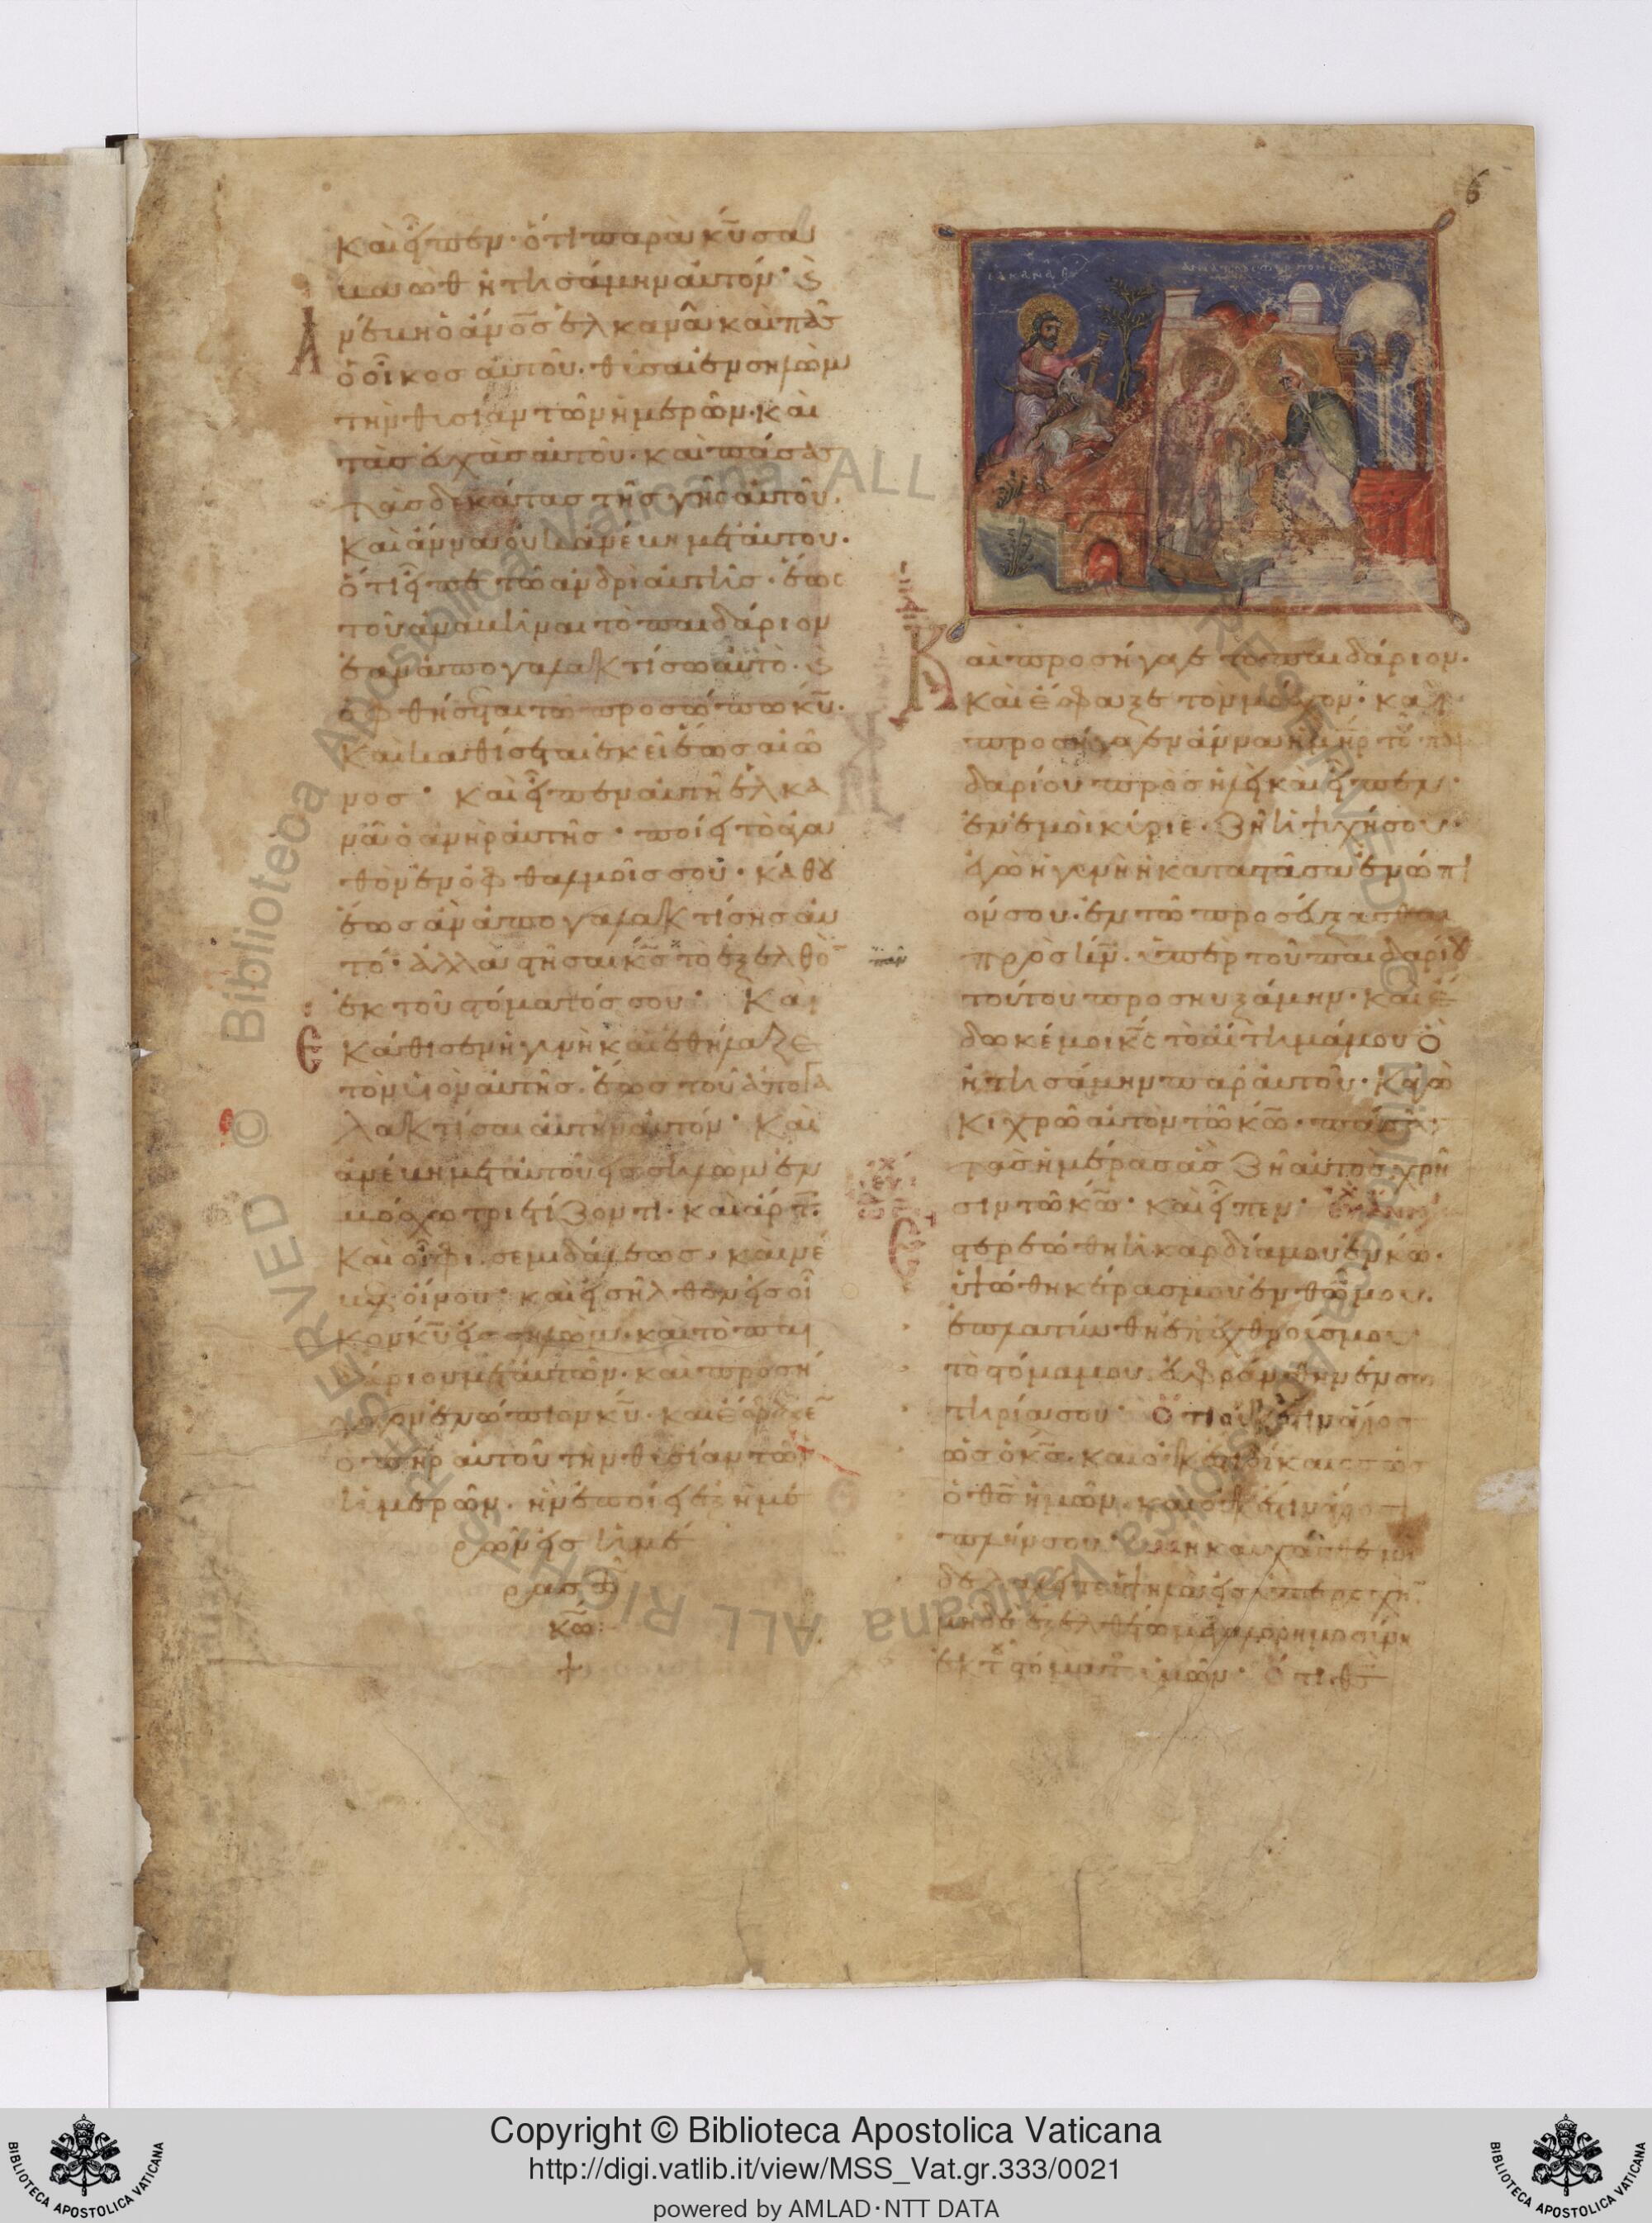 6
καὶ εἶπεν· ὅτι παρὰ κ̅υ̅ σα
βαὼθ ἠτησάμην αὐτόν· Ἀ
νέβη ὁ ἄν̅ο̅ς̅ ἐλκανᾶ καὶ πᾶς
ὁ οἶκος αὐτοῦ. θῦσαι ἐν σηλὼμ
τὴν θυσίαν τῶν ἡμερῶν· καὶ
τὰς εὐχὰς αὐτοῦ. καὶ πάσας
τὰς δεκάτας τῆς γῆς αὐτοῦ.
Καὶ ἄννα οὐκ ἀνέβη μετ' αὐτοῦ.
ὅτι εἶπε τῶ ἀνδρὶ αὐτῆς. ἕως
τοῦ ἀναβῆναι τὸ παιδάριον
ἐὰν ἀπογαλακτίσω αὐτὸ. καὶ
ὀφθήσεται τῶ προσώπω κ̅υ̅.
Καὶ καθίσεται ἐκεῖ ἕως αἰῶ
νος· καὶ εἶπεν αὐτῆ ἐλκα
νᾶ ὁ ἀνὴρ αὐτῆς· ποίει τὸ ἀγα
θὸν ἐν ὀφθαλμοῖς σου· κάθου
ἕως ἂν ἀπογαλακτίσης αὐ
τό· ἀλλὰ στήσαι κ̅ς̅ τὸ ἐξελθὸ
ἐκ τοῦ στόματός σου· Καὶ
Ἐκάθισεν ἡ γυνὴ καὶ ἐθήλαζε
τὸν υἱὸν αὐτῆς. ἕως τοῦ ἀπογα
λακτίσαι αὐτὴν αὐτόν· Καὶ
ἀνέβη μετ' αὐτοῦ εἰς σηλὼμ ἐν
μόσχω τριετίζοντι· καὶ ἄρτ.
Καὶ οἰφι. σεμιδάλεως. καὶ νέ
βελ οἴνου· καὶ εἰσῆλθον εἰς οἶ
κον κ̅υ̅ εἰς σηλὼμ. καὶ τὸ παι
δάριον μετ' αὐτῶν. καὶ προσή
γαγον ἐνώπιον κ̅υ̅. καὶ ἔσφαξε
ὁ π̅η̅ρ̅ αὐτοῦ τὴν θυσίαν τῶν
ἡμερῶν. ἣν ἐποίει ἐξ ἡμε
ρῶν εἰς ἡμέ
ρας τῶ
κ̅ω̅:
+
Καὶ προσήγαγε τὸ παιδάριον.
Καὶ ἔσφαξε τὸν μόσχον· καὶ
προσήγαγεν ἄννα ἡ μ̅η̅ρ̅ τοῦ παι
δαρίου πρὸς ἠλὶ καὶ εἶπεν·
ἐν ἐμοὶ κύριε. ζῆ ἡ ψυχή σου·
ἐγὼ ἡ γυνὴ ἡ καταστᾶσα ἐνώπι
όν σου. ἐν τῶ προσεύξασθαι
πρὸς κ̅ν̅. ὑπὲρ τοῦ παιδαρίου
τούτου προσηυξάμην· καὶ ἔ
δωκέ μοι κ̅ς̅ τὸ αἴτημά μου ὃ
ἠτησάμην παρ' αὐτοῦ· Κἀγὼ
κιχρῶ αὐτὸν τῶ κ̅ω̅. πάσας
τὰς ἡμέρας ἃς ζῆ αὐτὸς χρῆ
σιν τῶ κ̅ω̅· καὶ εἶπεν·
Ἐστερεώθη ἡ καρδία μου ἐν κ̅ω̅.
ὑψώθη κέρας μου ἐν θ̅ω̅ μου.
ἐπλατύνθη ἐπ' ἐχθρούς μου
τὸ στόμα μου. εὐφράνθην ἐν σω
τηρία σου· Ὅτι οὐκ ἔστιν ἅγιος
ὡς ὁ κ̅ς̅. καὶ οὐκ ἔστι δίκαιος ὡς
ὁ θ̅ς̅ ἡμῶν. καὶ οὐκ ἔστιν ἅγιος
πλήν σου· μὴ καυχᾶσθε μὴ
δὲ λαλεῖτε ὑψηλὰ εἰς ὑπεροχὴ
μηδὲ ἐξελθέτω μεγαλορημοσύνη
ἐκ τοῦ στόματος ὑμῶν· Ὅτι θ̅ς̅
Biblioteca Apostolica Vaticana ALL RIGHTS RESERVED ©
Copyright © Biblioteca Apostolica Vaticana
http://digi.vatlib.it/view/MSS_Vat.gr.333/0021
powered by AMLAD·NTT DATA
BIBLIOTECA APOSTOLICA VATICANA
BIBLIOTECA APOSTOLICA VATICANA